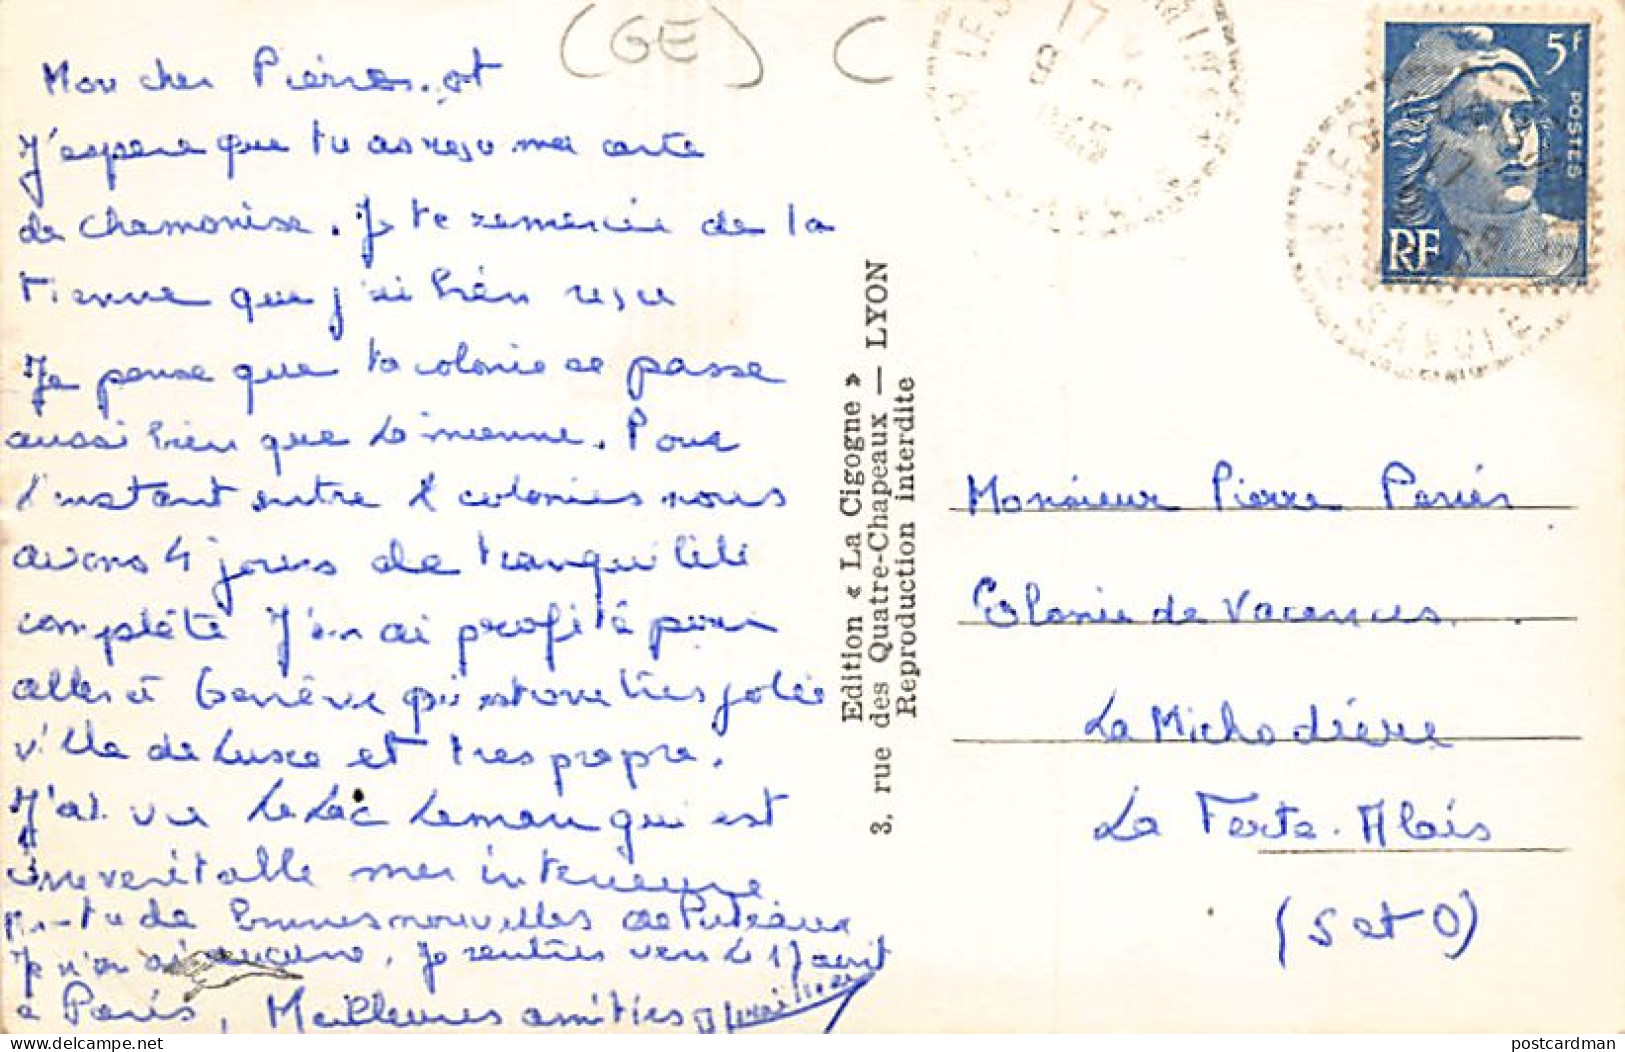 (GE) C
Mon cher Pierrot
J'espere que tu as resu ma carte
de Chamonise. Je te remercie de la
Tienne que j'ai bien resu
Je pense que ta colonie se passe
aussi bien que la mienne. Pour
l'instant entre 2 colonies nous
avons 4 jours de tranquilité
complète J'en ai profité pour
aller à Genève qui est une très jolie
ville de Suise et tres propre.
J'ai vu Le Lac Leman qui est
une veritable mer interieure
As-tu de bonnes nouvelles de Puteaux
Je n'en ai aucune. Je rentres vers le 17 aout
a Paris, Meilleures amitiés
Edition « La Cigogne »
3, rue des Quatre-Chapeaux — LYON
Reproduction interdite
5F
POSTES
RF
17
SAVOIE
Monsieur Pierre Pariés
Colonie de Vacances.
La Michodière
La Ferte-Alais
(S et O)
delcampe.net
postcardman